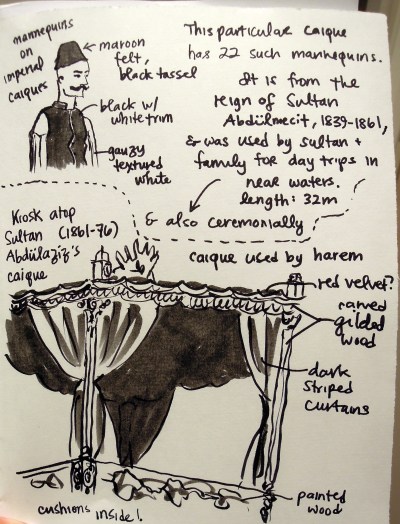 mannequins
on
imperial
caiques
maroon
felt,
black tassel
black w/
white trim
gauzy
textured
white
This particular caique
has 22 such mannequins.
It is from the
reign of Sultan
Abdülmecit, 1839-1861,
& was used by sultan +
family for day trips in
near waters.
length: 32m
& also ceremonially
Kiosk atop
Sultan (1861-76)
Abdülaziz's
caique
caique used by harem
red velvet?
carved
gilded
wood
dark
striped
curtains
painted
wood
cushions inside!